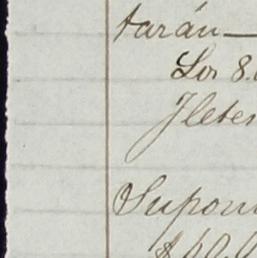 tarán—
Los 8.
Fletes
Supon
$ 60.0